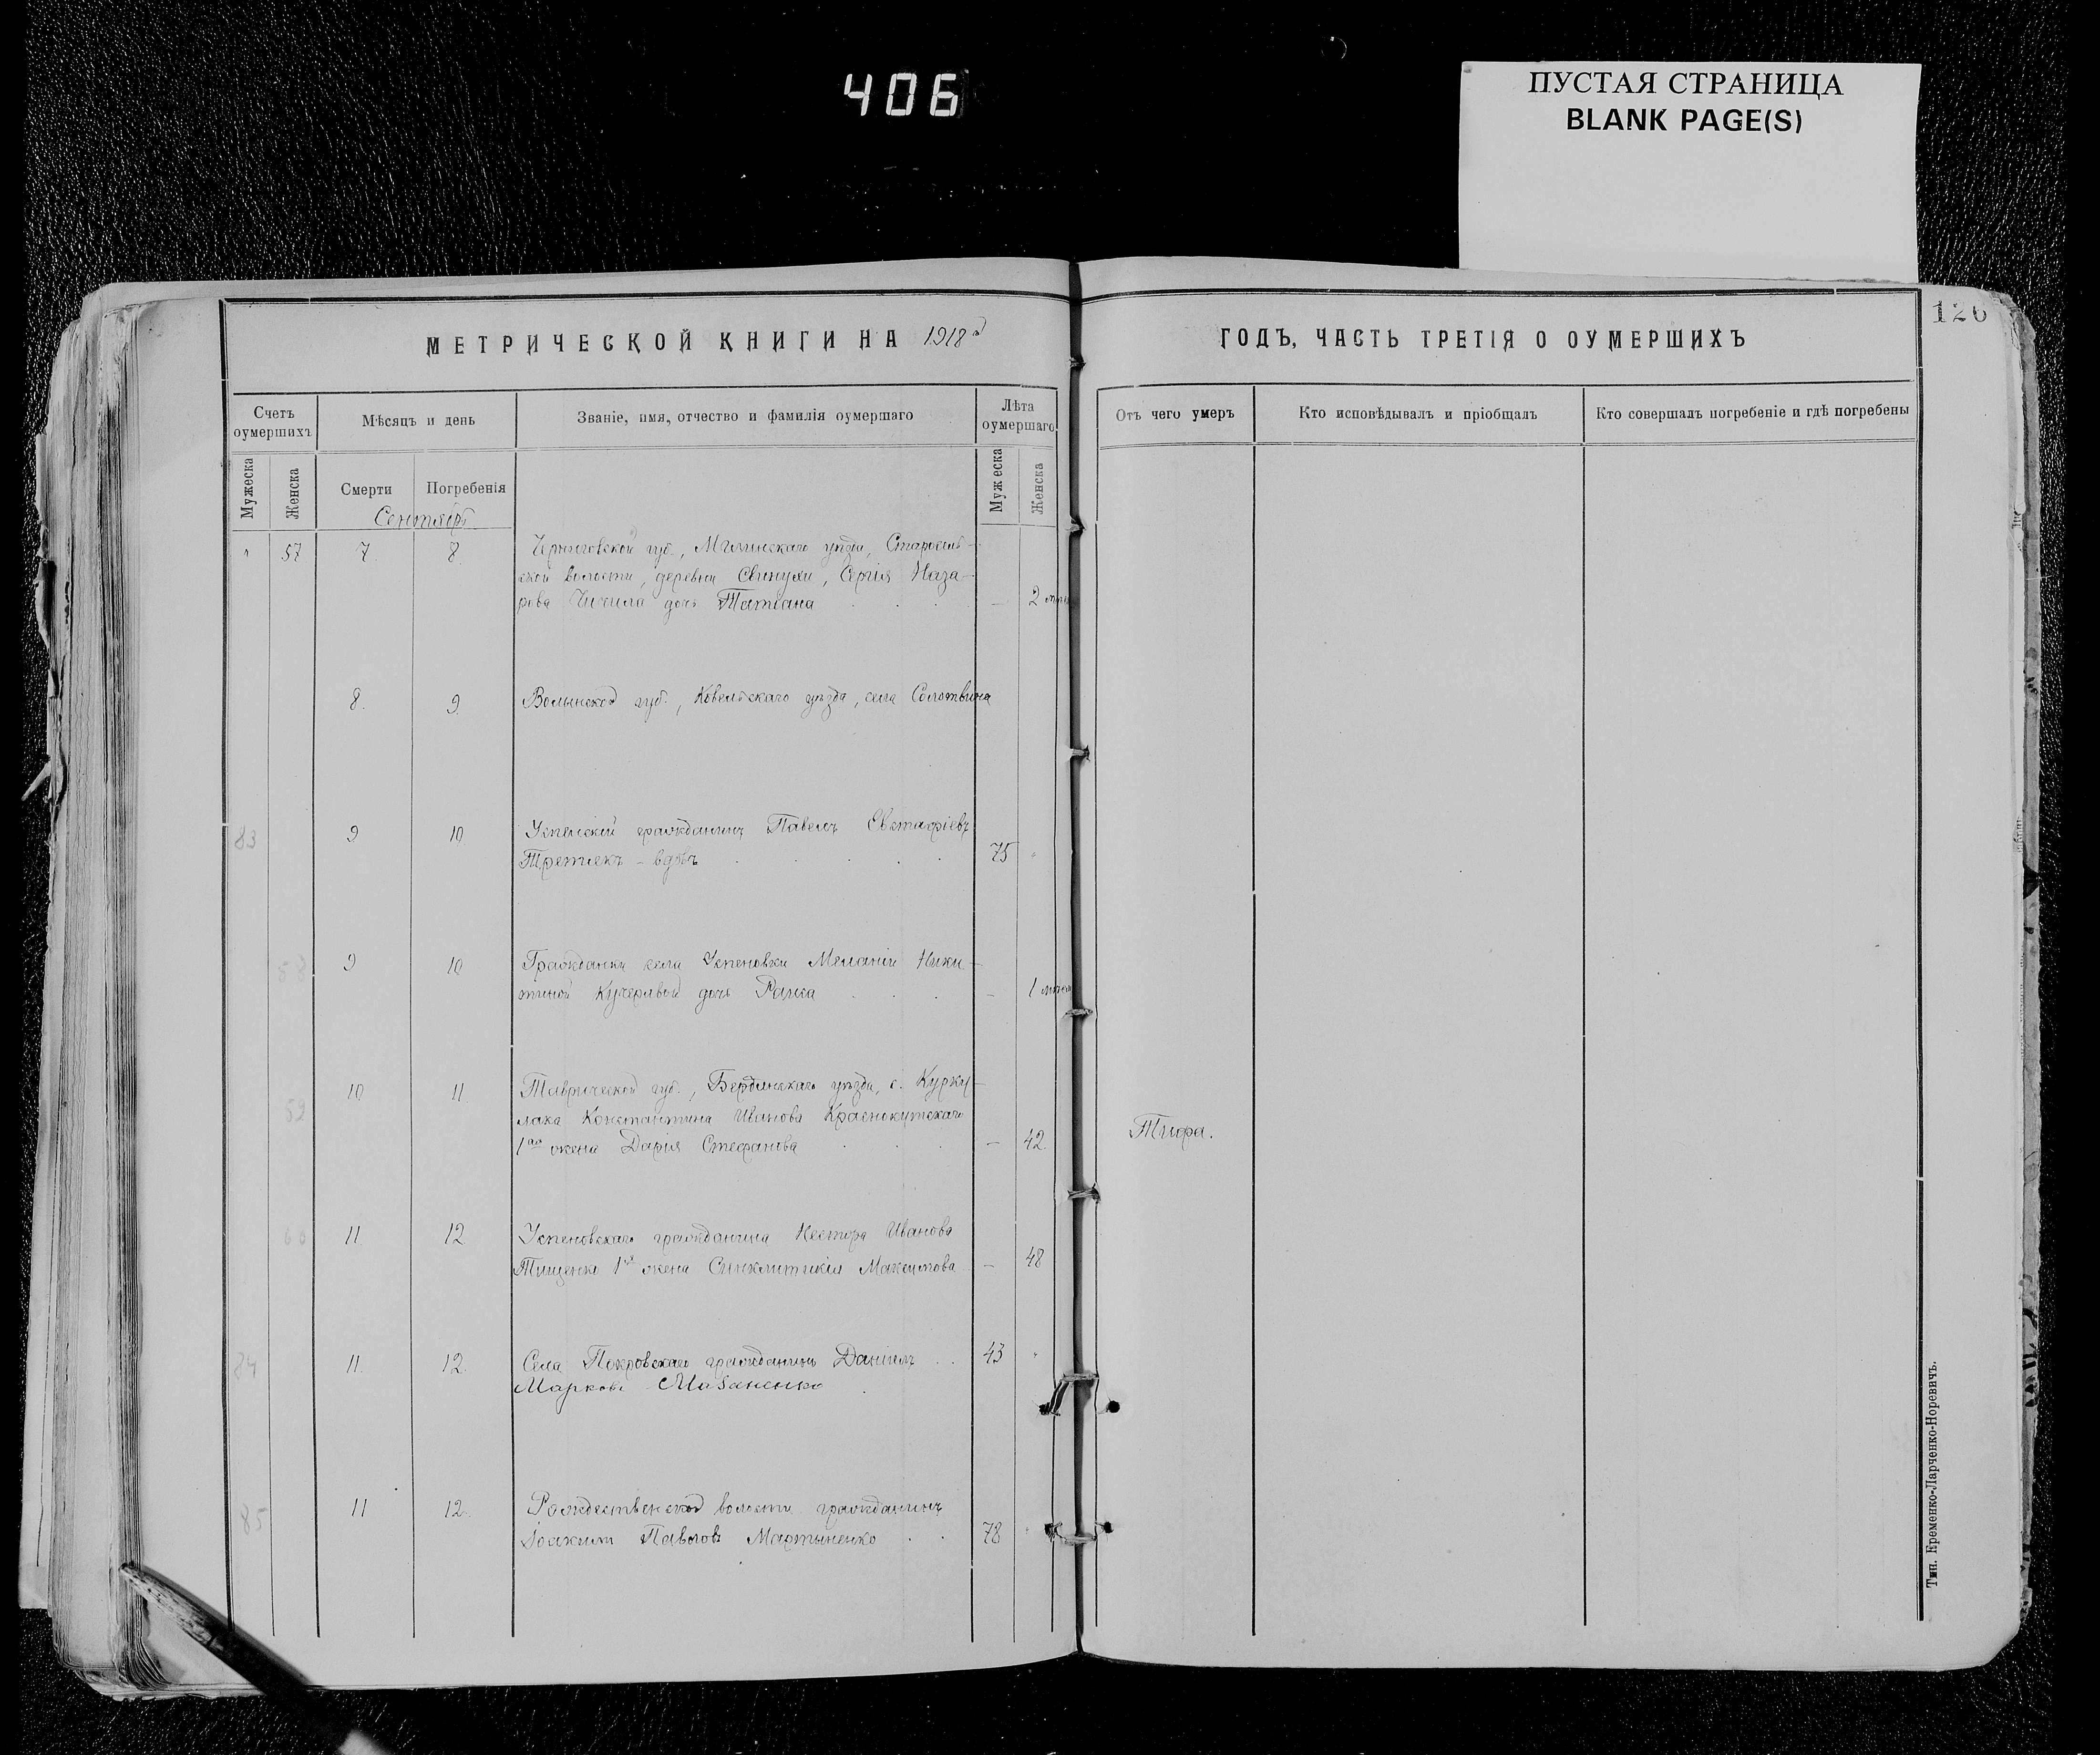 406
ПУСТАЯ СТРАНИЦА
BLANK PAGE(S)
126
МЕТРИЧЕСКОЙ КНИГИ НА 1918й
ГОДЪ, ЧАСТЬ ТРЕТІЯ О ОУМЕРШИХЪ
Счетъ оумершихъ
Мѣсяцъ и день
Званіе, имя, отчество и фамилія оумершаго
Лѣта оумершаго
Отъ чего умеръ
Кто исповѣдывалъ и пріобщалъ
Кто совершалъ погребеніе и гдѣ погребены
Мужеска
Женска
Смерти
Погребенія
Мужеска
Женска
Сентябрь
57 7 8 Черниговской губ., Мглинскаго уѣзда, Старосель-
ской волости, деревни Свинухи, Сергія Наза-
рова дочь Татіана — 2
8. 9. Волынской губ., Ковельскаго уѣзда, села Солотвина
83 9 10 Успенскій гражданинъ Павелъ Евстафіевъ
Третяекъ - вдовъ 75 "
58 9 10 Гражданки села Успеновки Меланіи Ники-
тиной Кучерявой дочь Раиса — 1
59 10 11 Таврической губ., Бердянскаго уѣзда, с. Курку-
лака Константина Иванова Краснокутскаго
1ая жена Дарія Стефанова — 42.
Тифа.
60 11. 12. Успеновскаго гражданина Нестора Иванова
Тищенко 1я жена Синклитикія Максимова — 48
84 11. 12. Села Покровскаго гражданинъ Даніилъ 43 "
Марковъ Мазаненко
85 11 12. Рождественской волости гражданинъ
Іоакимъ Павловъ Мартыненко 78 "
Тип. Еременко-Ларченко-Норевичъ.